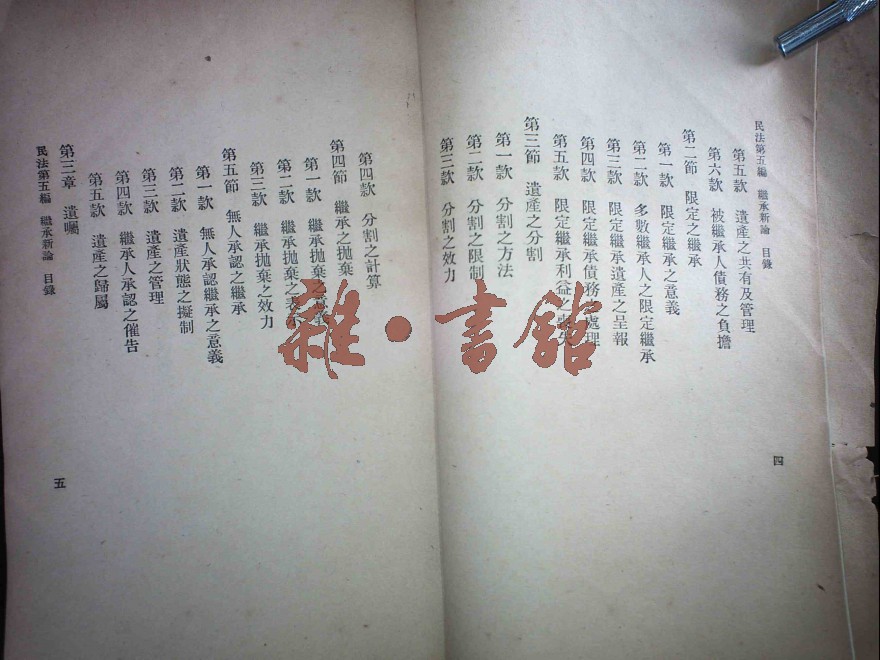 民法第五編 繼承新論 目錄
第五款 遺產之共有及管理
第六款 被繼承人債務之負擔
第二節 限定之繼承
第一款 限定繼承之意義
第二款 多數繼承人之限定繼承
第三款 限定繼承遺產之呈報
第四款 限定繼承債務之處理
第五款 限定繼承利益之喪失
第三節 遺產之分割
第一款 分割之方法
第二款 分割之限制
第三款 分割之效力
四
第四款 分割之計算
第四節 繼承之拋棄
第一款 繼承拋棄之意義
第二款 繼承拋棄之表示
第三款 繼承拋棄之效力
第五節 無人承認之繼承
第一款 無人承認繼承之意義
第二款 遺產狀態之擬制
第三款 遺產之管理
第四款 繼承人承認之催告
第五款 遺產之歸屬
第三章 遺囑
民法第五編 繼承新論 目錄
五
雜·書館